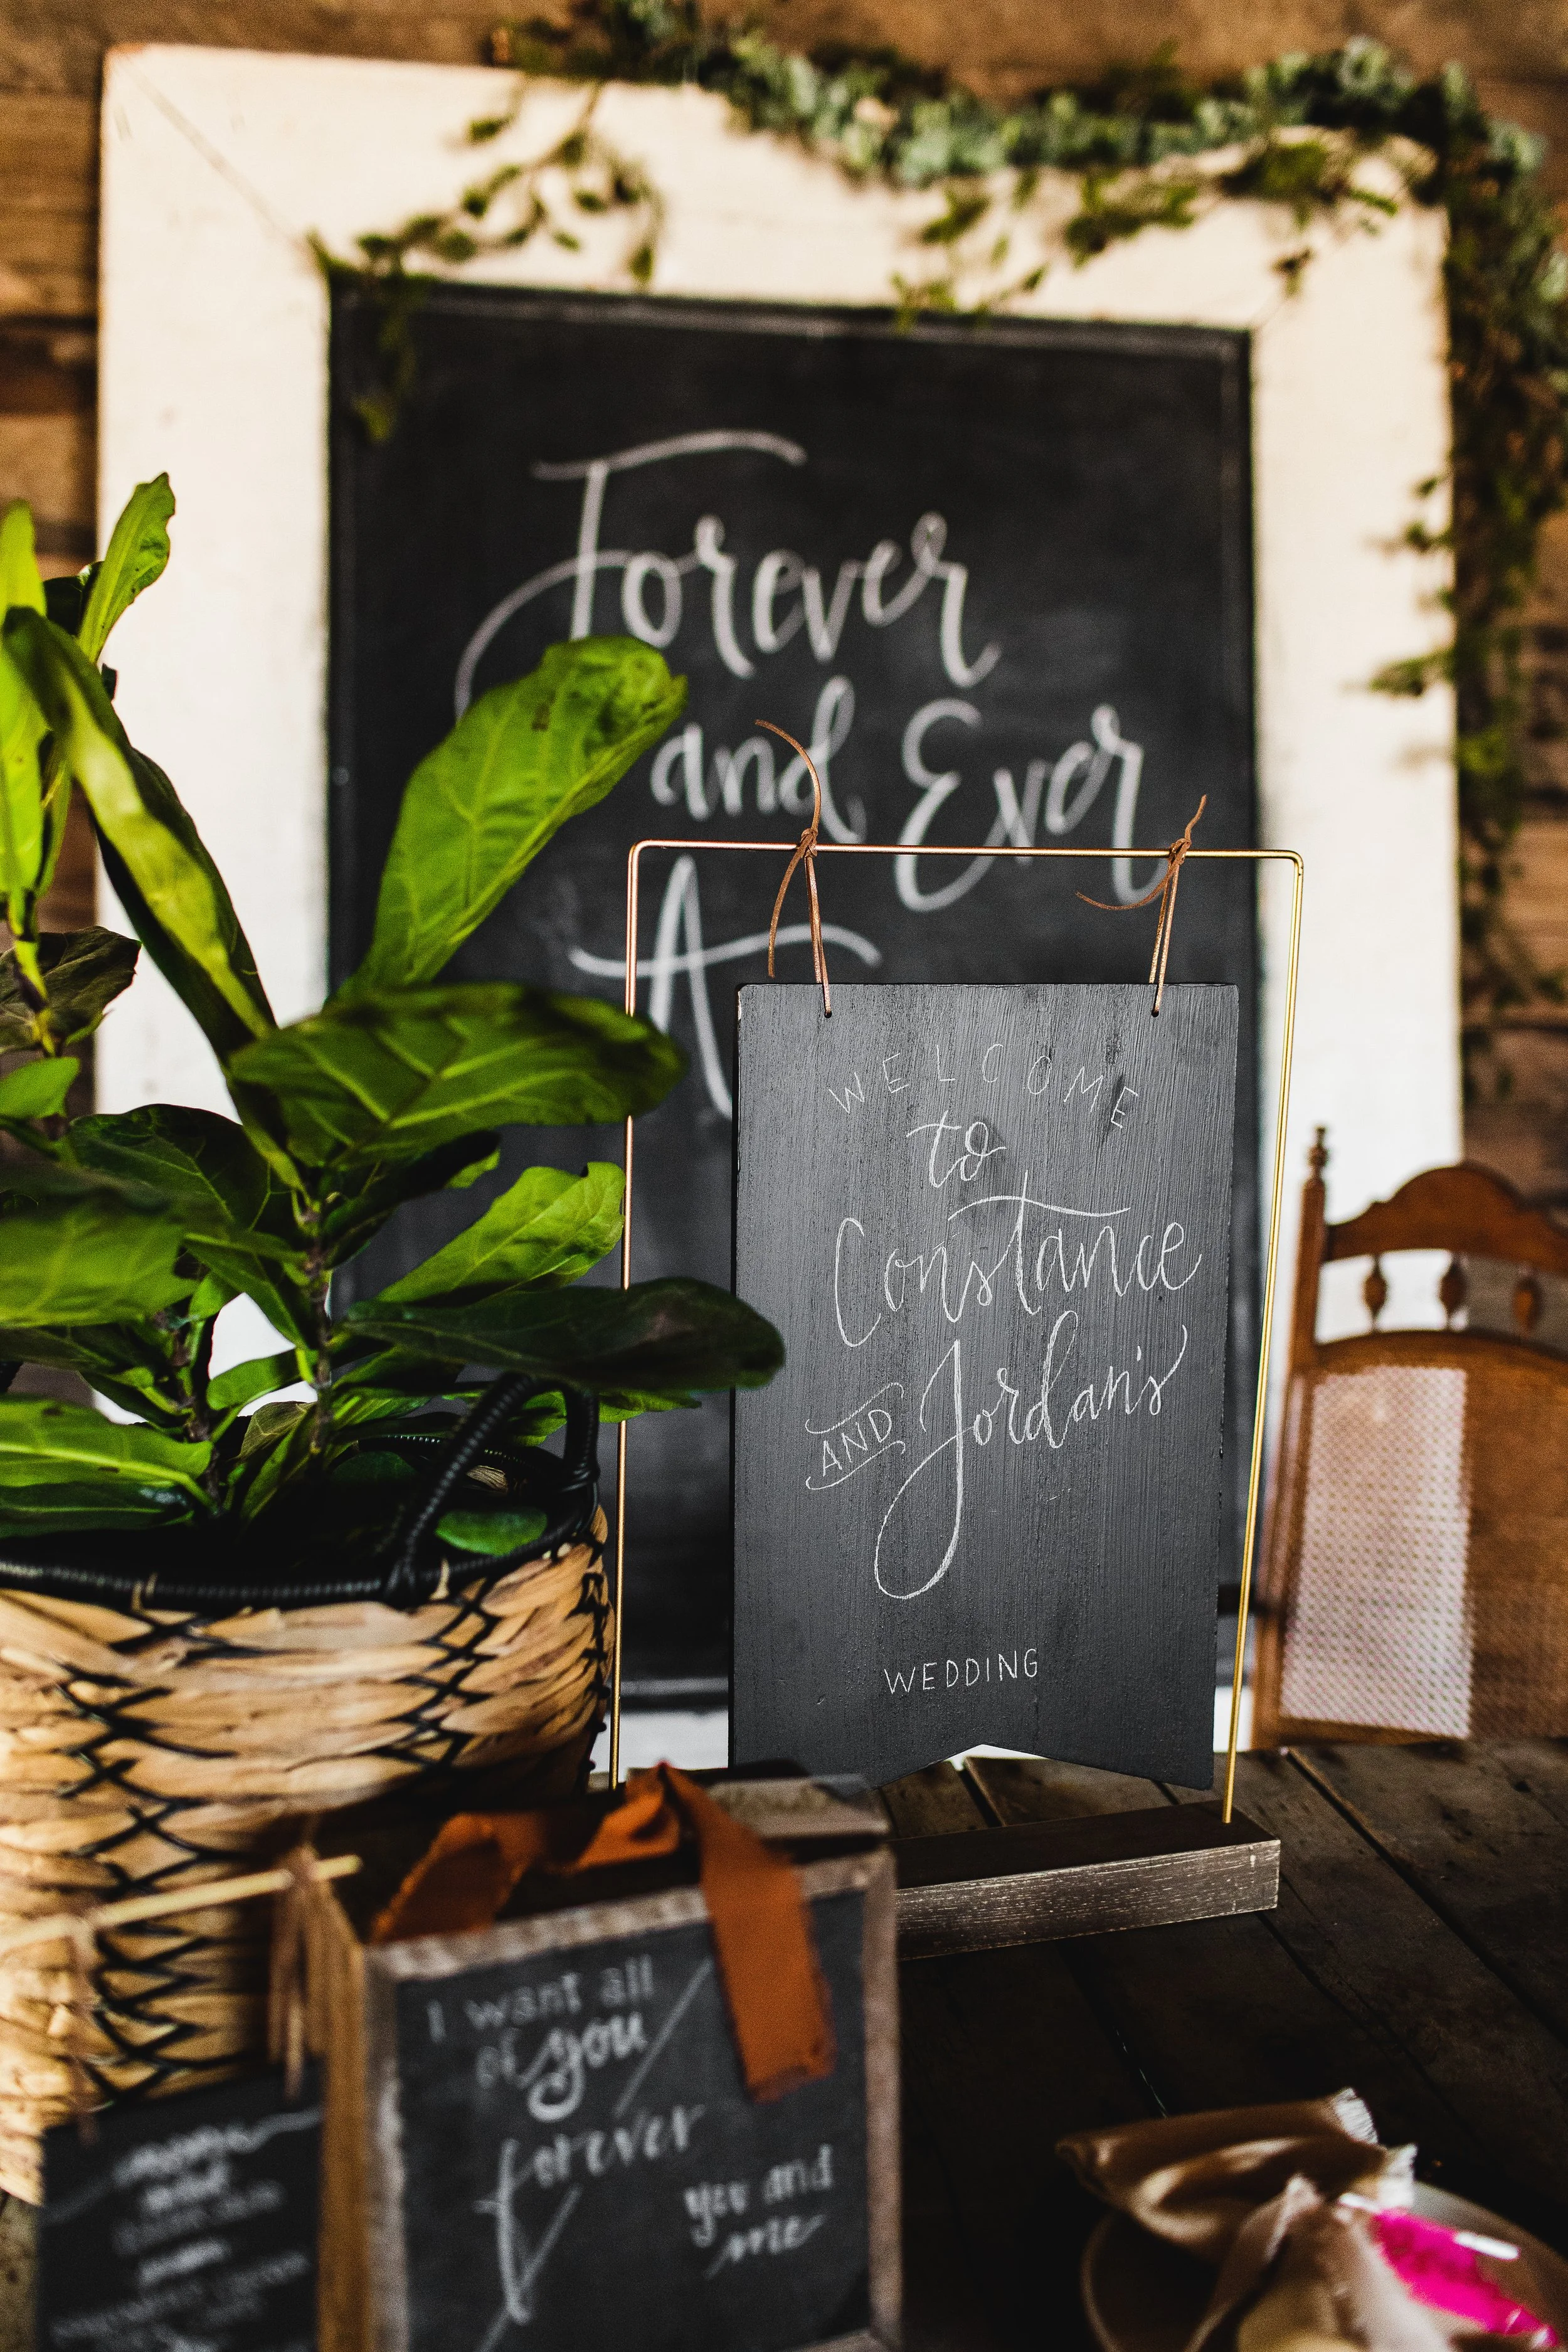 Forever
and Ever
WELCOME
to
Constance
AND Jordan's
WEDDING
I want all
of you
forever
you and
me